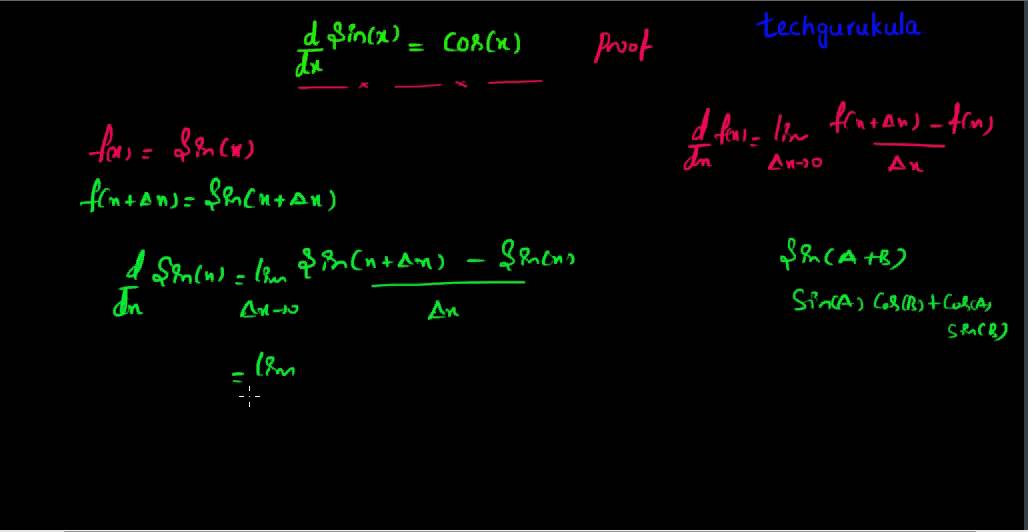 techgurukula
d/dx Sin(x) = Cos(x) Proof
d/dx f(x) = lim Δx→0 f(x+Δx) - f(x) / Δx
f(x) = Sin(x)
f(x+Δx) = Sin(x+Δx)
d/dx Sin(x) = lim Δx→0 Sin(x+Δx) - Sin(x) / Δx
Sin(A+B)
Sin(A) Cos(B) + Cos(A)
Sin(B)
= lim